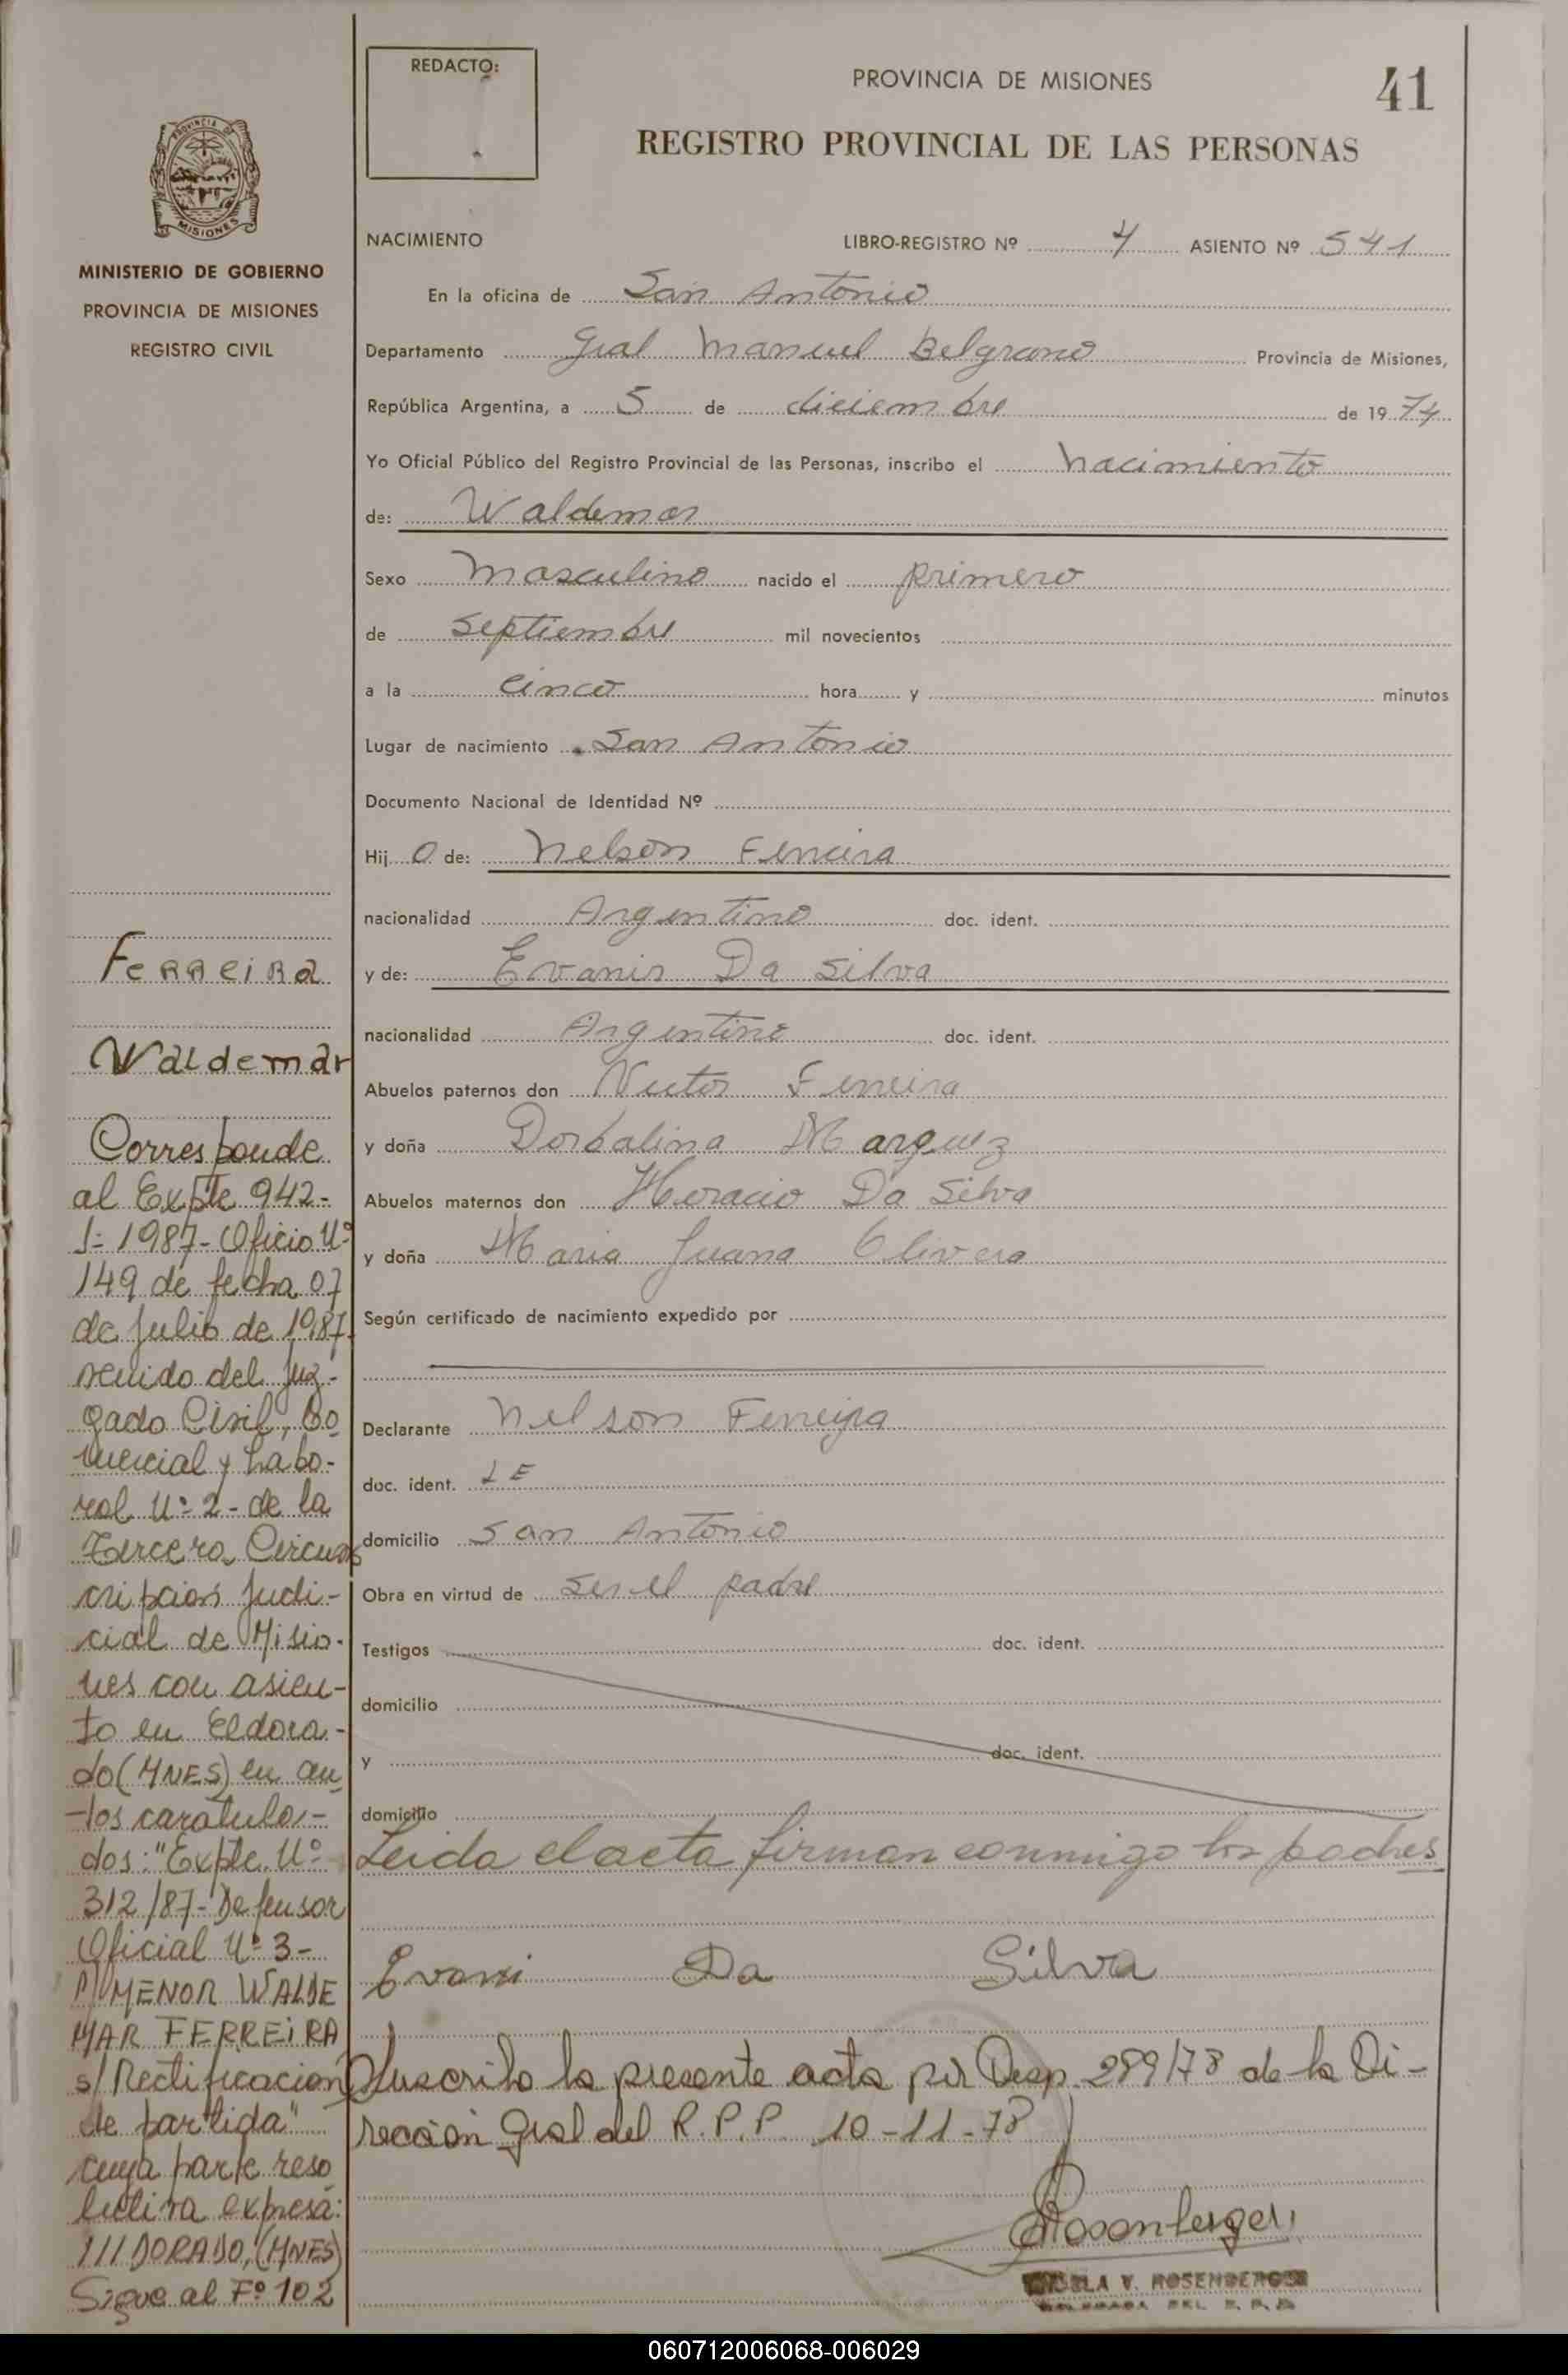 REDACTO:
PROVINCIA DE MISIONES
41
REGISTRO PROVINCIAL DE LAS PERSONAS
PROVINCIA DE
MISIONES
MINISTERIO DE GOBIERNO
PROVINCIA DE MISIONES
REGISTRO CIVIL
NACIMIENTO LIBRO-REGISTRO Nº 4 ASIENTO Nº 541
En la oficina de San Antonio
Departamento Gral Manuel Belgrano Provincia de Misiones,
República Argentina, a 5 de diciembre de 1974
Yo Oficial Público del Registro Provincial de las Personas, inscribo el nacimiento
de: Waldemar
Sexo masculino nacido el primero
de septiembre mil novecientos
a la cinco hora y minutos
Lugar de nacimiento San Antonio
Documento Nacional de Identidad Nº
Hij o de: Nelson Ferreira
nacionalidad Argentino doc. ident.
y de: Evanir Da Silva
nacionalidad Argentina doc. ident.
Abuelos paternos don Victor Ferreira
y doña Dorbalina Marquez
Abuelos maternos don Horacio Da Silva
y doña Maria Juana Olivera
Según certificado de nacimiento expedido por
Declarante Nelson Ferreira
doc. ident. LE
domicilio San Antonio
Obra en virtud de ser el padre
Testigos doc. ident.
domicilio
y doc. ident.
domicilio
Leida el acta firman conmigo los padres
Evani Da Silva
Suscrito la presente acta por Disp. 289/78 de la Di-
rección Gral del R.P.P. 10-11-78
Rosenberger
V. ROSENBERGER
Ferreira
Waldemar
Corresponde
al Expte 942-
J- 1987- Oficio Nº
149 de fecha 07
de Julio de 1987
venido del Juz-
gado Civil, Co
mercial y Labo-
ral Nº 2 - de la
Tercera Circuns
cripcion Judi-
cial de Misio-
nes con asien-
to en Eldora-
do (MNES) en au
-tos caratula-
dos: "Expte. Nº
312/87- Defensor
Oficial Nº 3-
P/MENOR WALDE
MAR FERREIRA
s/ Rectificacion
de partida"
cuya parte reso
lutiva expresa:
///DORADO, (MNES)
Sigue al Fº 102
060712006068-006029